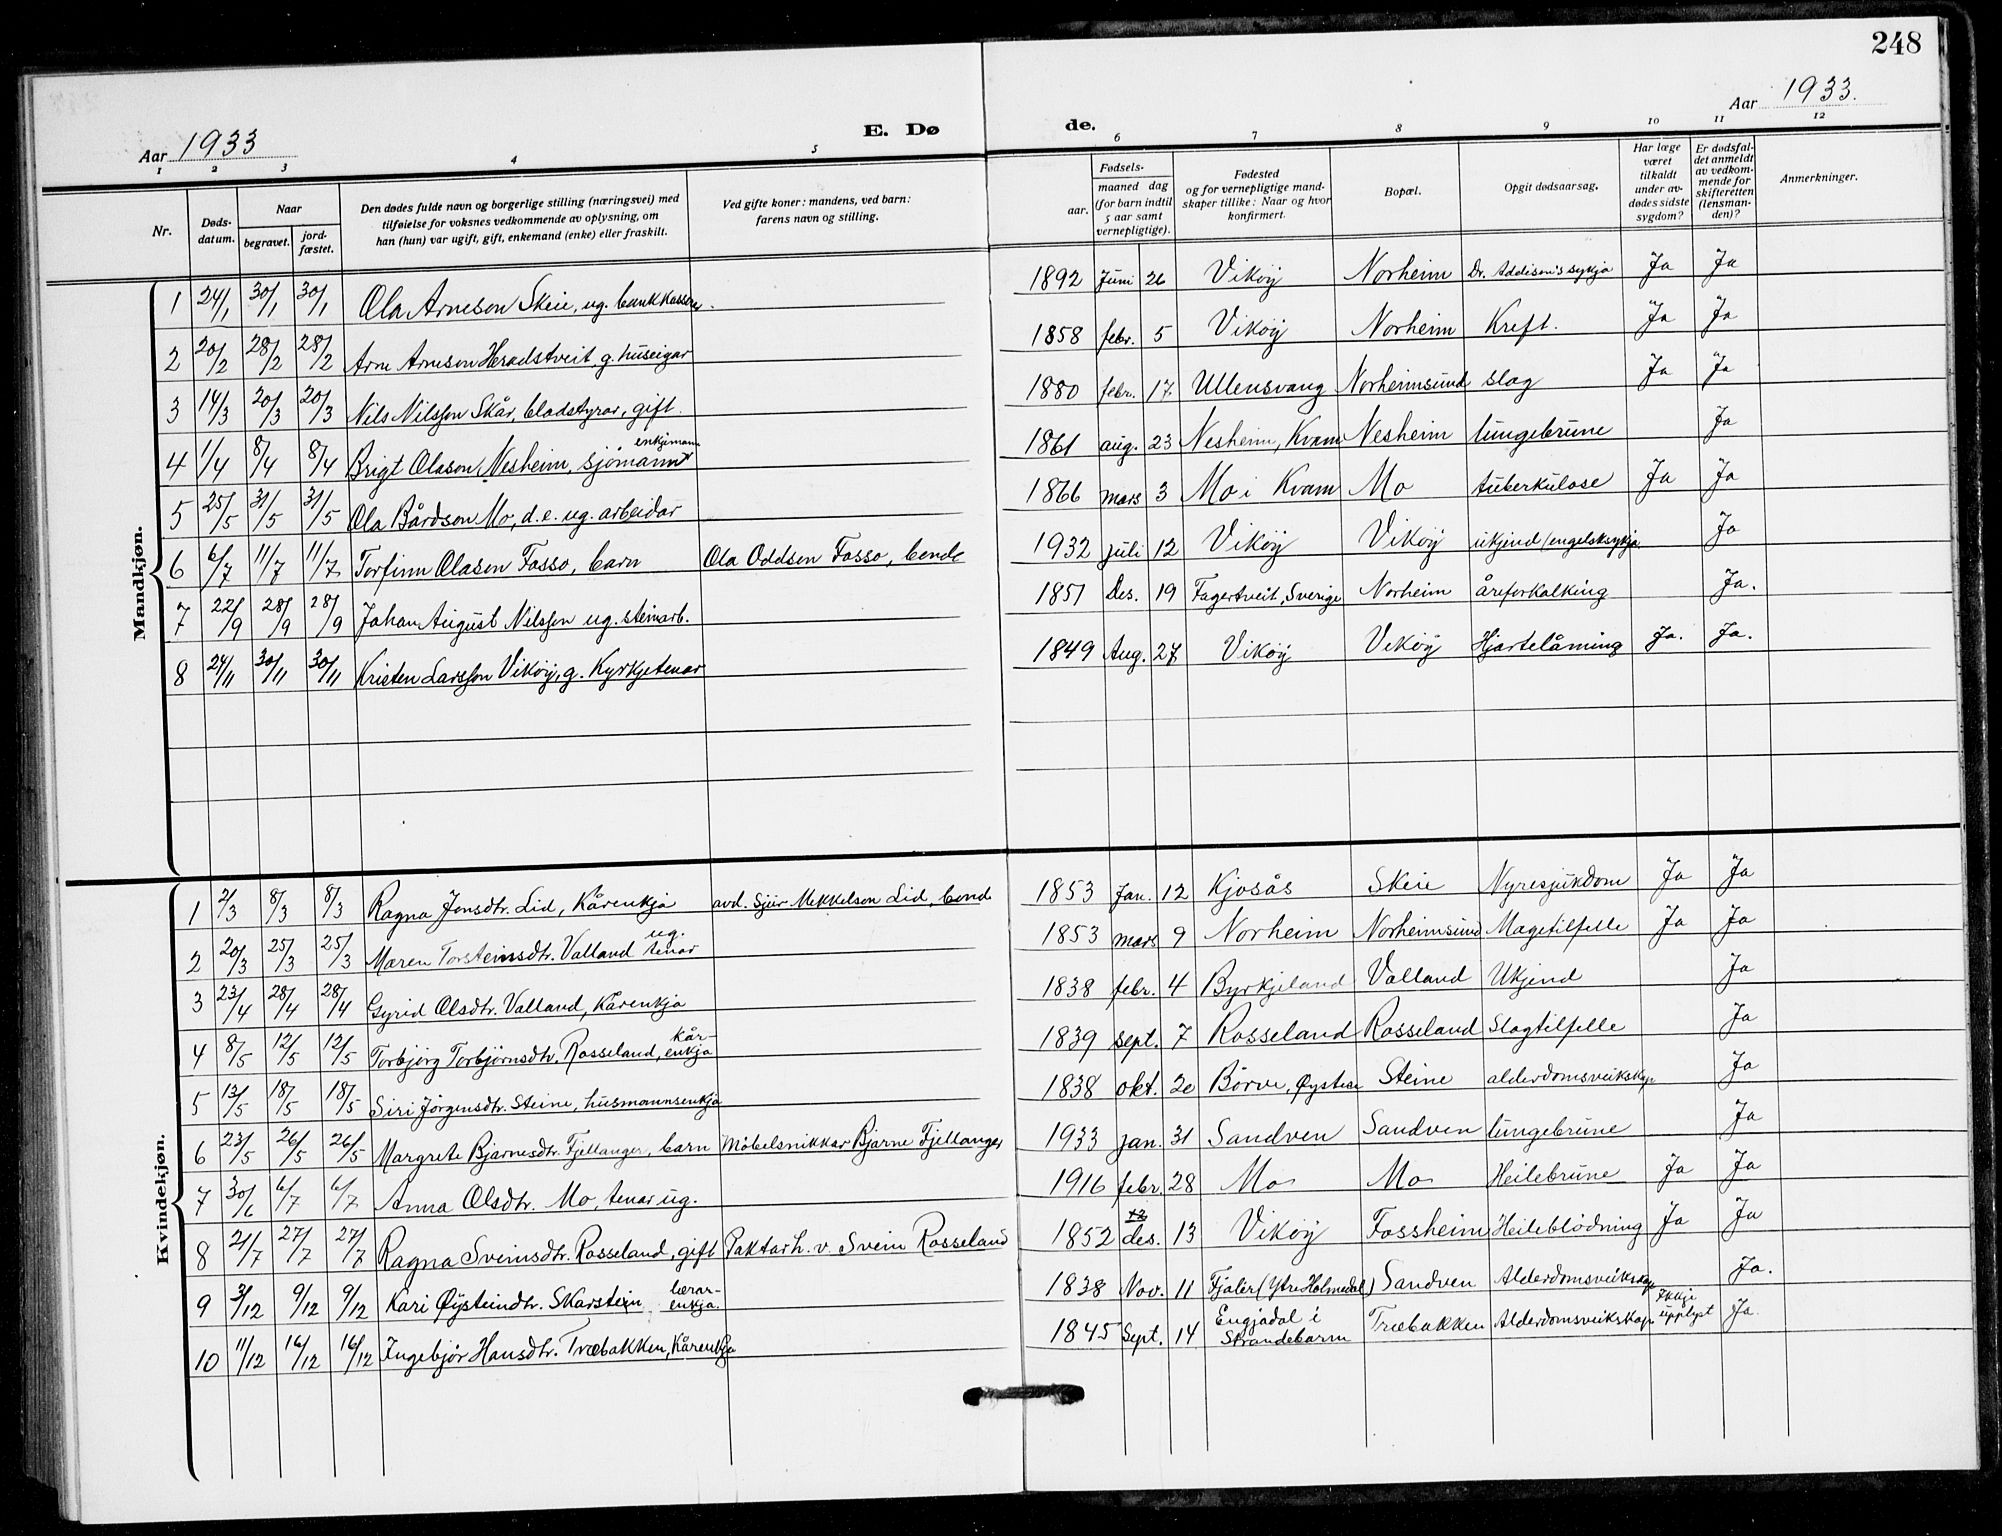 248
Aar 1933
E. Dø
de.
Aar 1933.
1 2 3 4 5 6 7 8 9 10 11 12
Nr.
Døds-
datum.
Naar
begravet.
jord-
fæstet.
Den dødes fulde navn og borgerlige stilling (næringsvei) med
tilføielse for voksnes vedkommende av oplysning, om
han (hun) var ugift, gift, enkemand (enke) eller fraskilt.
Ved gifte koner: mandens, ved barn:
farens navn og stilling.
Fødsels-
aar.
maaned dag
(for barn indtil
5 aar samt
vernepligtige).
Fødested
og for vernepligtige mand-
skaper tillike: Naar og hvor
konfirmert.
Bopæl.
Opgit dødsaarsag.
Har læge
været
tilkaldt
under av-
dødes sidste
sygdom?
Er dødsfal-
det anmeldt
av vedkom-
mende for
skifteretten
(lensman-
den)?
Anmerkninger.
Mandkjøn.
1 24/1 30/1 30/1 Ola Arneson Skeie, ug. bankkasserar. 1892 Juni 26 Vikøy Norheim Dr. Addison's sykja Ja Ja
2 20/2 28/2 28/2 Arne Arneson Heradstveit, g. huseigar 1858 febr. 5 Vikøy Norheim Kreft. Ja Ja
3 14/3 20/3 20/3 Nils Nilsson Skår, bladstyrar, gift. 1880 febr. 17 Ullensvang Norheimsund slag Ja Ja
4 1/4 8/4 8/4 Brigt Olason Nesheim, sjømann enkjemann 1861 aug. 23 Nesheim, Kvam Nesheim lungebrune Ja
5 25/5 31/5 31/5 Ola Bårdson Mo, d.e. ug. arbeidar 1866 mars 3 Mo i Kvam Mo tuberkulose Ja Ja
6 6/7 11/7 11/7 Torfinn Olason Fosso, barn Ola Oddsen Fosso, bonde 1932 juli 12 Vikøy Vikøy ukjend (engelsksykja Ja
7 22/9 28/9 28/9 Johan August Nilsson ug. steinarb. 1851 Des. 19 Fagertveit, Sverige Norheim åreforkalking Ja.
8 24/11 30/11 30/11 Kristen Larsson Vikøy, g. Kyrkjetenar 1849 Aug. 27 Vikøy Vikøy Hjartelåming Ja. Ja.
Kvindekjøn.
1 2/3 8/3 8/3 Ragna Jonsdtr. Lid, Kårenkja avd. Sjur Mikkelson Lid, bonde 1853 Jan. 12 Kjosås Skeie Nyresjukdom Ja Ja
2 20/3 25/3 25/3 Maren Torsteinsdtr. Valland ug. tenar 1853 mars 9 Norheim Norheimsund Magetilfelle Ja Ja
3 23/4 28/4 28/4 Gyrid Olsdtr. Valland, Kårenkja 1838 febr. 4 Byrkjeland Valland Ukjend Ja
4 8/5 12/5 12/5 Torbjørg Torbjørnsdtr. Rosseland, kår-enkja 1839 sept. 7 Rosseland Rosseland Slagtilfelle Ja
5 13/5 18/5 18/5 Siri Jørgensdtr. Steine, husmannsenkja 1838 okt. 20 Børve, Øystese Steine alderdomsveikskap Ja
6 23/5 26/5 26/5 Margrete Bjarnesdtr. Fjellanger, barn Møbelsnikkar Bjarne Fjellanger 1933 jan. 31 Sandven Sandven lungebrune Ja
7 30/6 6/7 6/7 Anna Olsdtr. Mo, tenar ug. 1916 febr. 28 Mo Mo Heilebrune Ja Ja
8 21/7 27/7 27/7 Ragna Sveinsdtr. Rosseland, gift Paktarh. v. Svein Rosseland 1852 des. 13 Vikøy Fossheim Heileblødning Ja Ja
9 3/12 9/12 9/12 Kari Øysteindtr. Skarstein lærar-enkja. 1838 Nov. 11 Fjaler (Ytre Holmedal) Sandven Alderdomsveikskap Ja.
10 11/12 16/12 16/12 Ingebjør Hansdtr. Træbakken, Kårenkja 1845 Sept. 14 Engjadal i Strandebarm Træbakken Alderdomsveikskap Ikkje upplyst Ja.